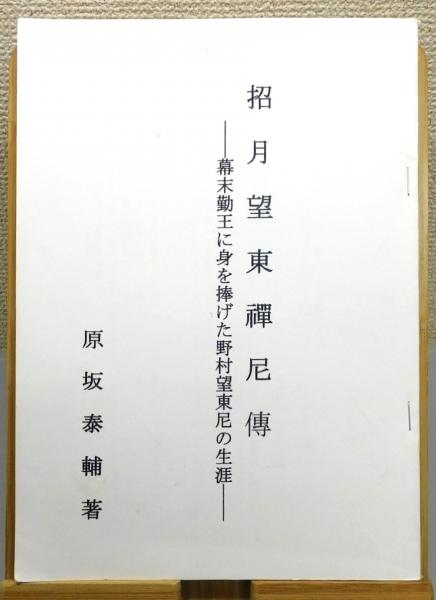 招月望東禪尼傳
――幕末勤王に身を捧げた野村望東尼の生涯――
原坂泰輔著